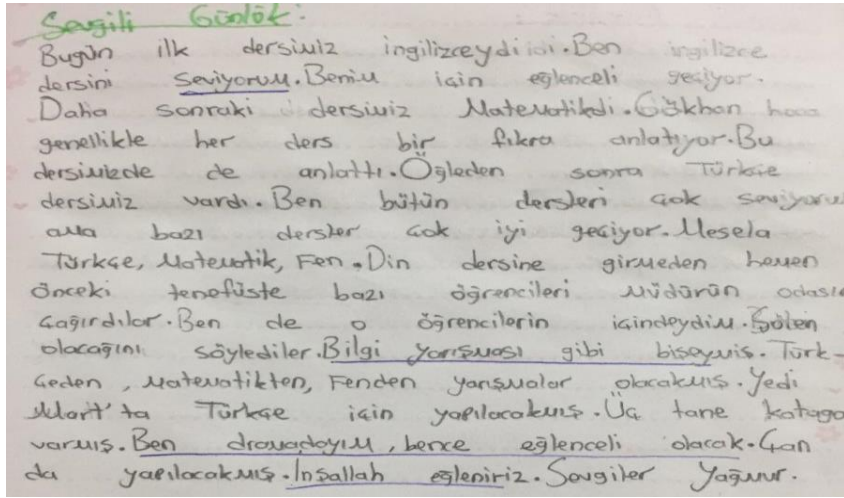 Sevgili Günlök:
Bugün ilk dersimiz ingilizceydi idi. Ben ingilizce
dersini seviyorum. Benim için eğlenceli geçiyor.
Daha sonraki dersimiz Matematikdi. Gökhan hoca
genellikle her ders bir fıkra anlatıyor. Bu
dersimizde de anlattı. Öğleden sonra Türkçe
dersimiz vardı. Ben bütün dersleri çok seviyorum
ama bazı dersler çok iyi geçiyor. Mesela
Türkçe, Matematik, Fen. Din dersine girmeden hemen
önceki tenefüste bazı öğrencileri müdürün odası
çağırdılar. Ben de o öğrencilerin içindeydim. Şölen
olacağını söylediler. Bilgi yarışması gibi bişeymiş. Türk-
çeden, matematikten, Fenden yarışmalar olacakmış. Yedi
Mart'ta Türkçe için yapılacakmış. Üç tane katago
varmış. Ben dramadayım, bence eğlenceli olacak. Çan
da yapılacakmış. İnşallah eğleniriz. Sevgiler Yağmur.